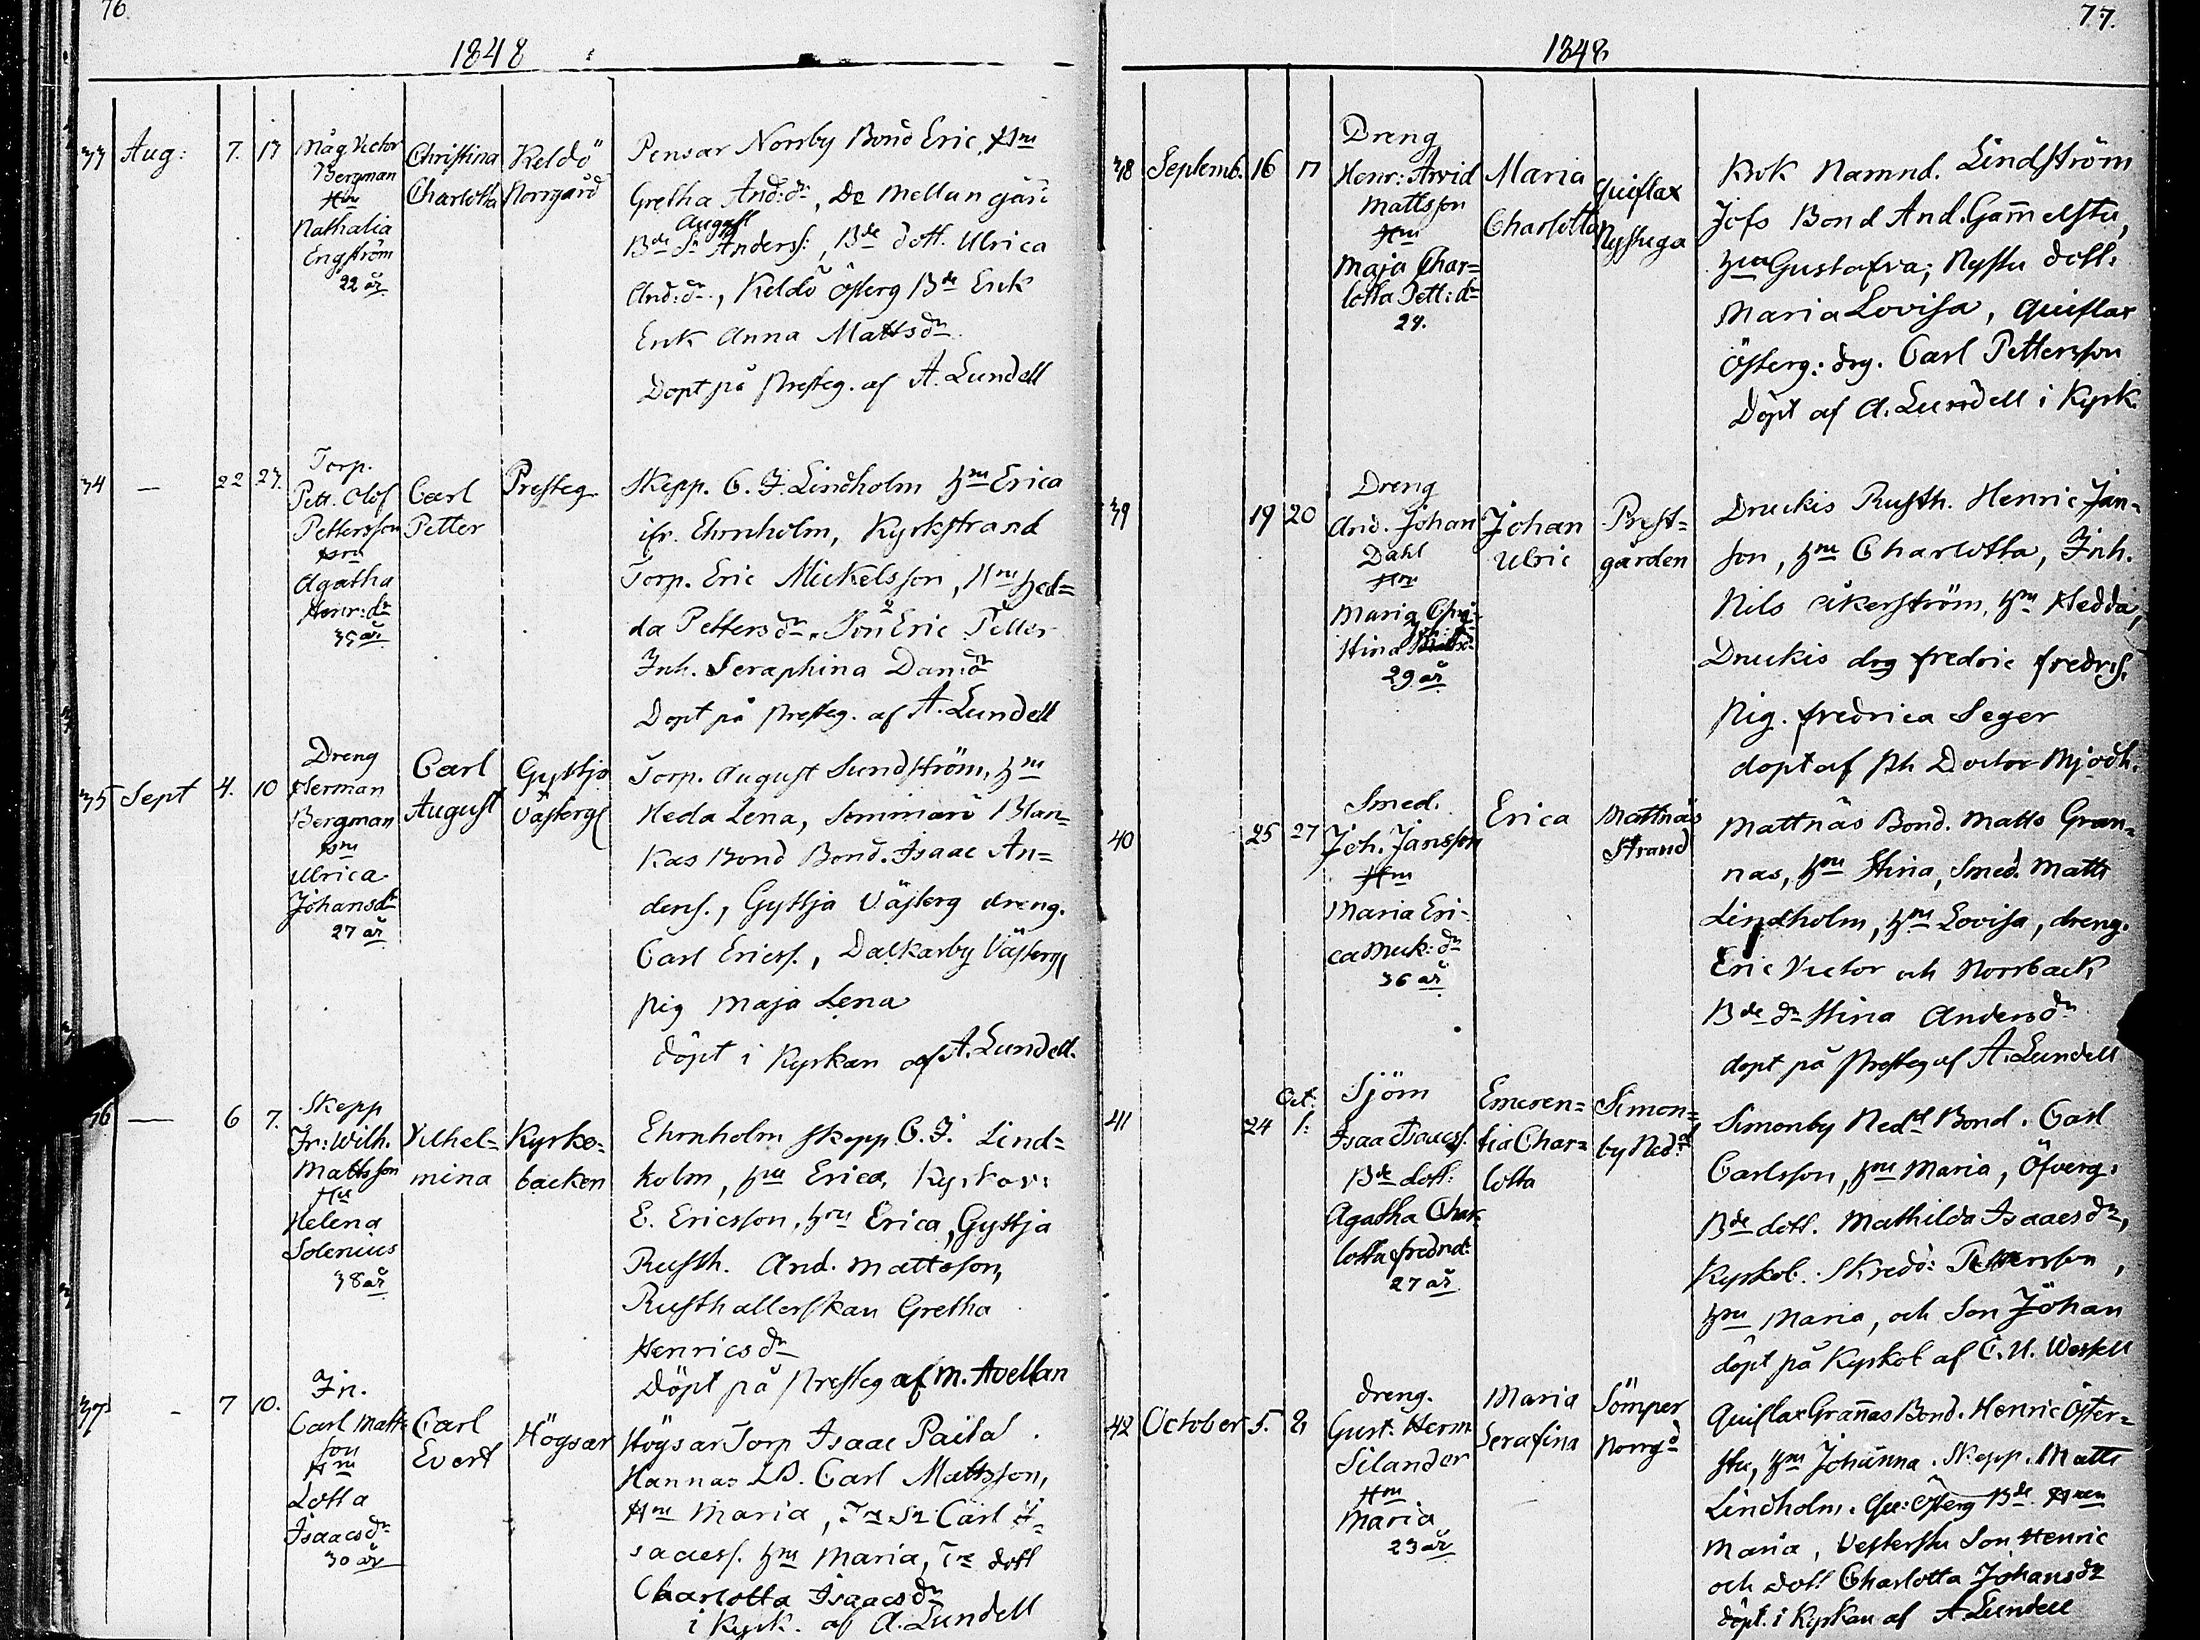 76
1848
33 Aug: 7. 13
Måg Victor
Bergman
Hru
Nathalia
Engström
22 år
Christina
Charlotta
Keldö
Norrgård
Pensar Norrby Bond Eric, Hru
Gretha And:dr, De Mellangår:
August
Bde Sn Anderss:, Bde dott. Ulrica
And:dr, Keldö Österg Bde Erik
Erik Anna Mattsdr
Döpt på Presteg. af A. Lundell
34 — 22 27.
Torp.
Pett. Olof
Pettersson
Hru
Agatha
Henr:dr
35 år
Carl
Petter
Presteg.
Skepp. C. F. Lindholm Hru Erica
ifr. Ehrnholm, Kyrkstrand
Torp. Eric Mickelsson, Hru Hed=
da Pettersdr, Son Eric Petter
Inh. Seraphina Damdr
Döpt på Presteg. af A. Lundell
35 Sept 4. 10
Dreng
Herman
Bergman
Hru
Ulrica
Johansdr
27 år
Carl
August
Gyttja
Västerg
Torp. August Sundström, Hru
Heda Lena, Sommarö Blan=
kas Bond Bond. Isaac An=
derss., Gyttja Västerg dreng.
Carl Ericss., Dalkarby Västerg
Pig Maja Lena
döpt i Kyrkan af A. Lundell.
36 — 6 7.
Skepp
Fr: Wilh.
Mattsson
Hru
Helena
Solenius
38 år
Vilhel=
mina
Kyrko=
backen
Ehrnholm Skepp C. F. Lind=
holm, Hru Erica, Kyrkov:
E. Ericsson, Hru Erica, Gyttja
Rusth. And. Mattsson,
Rusthallerskan Gretha
Henricsdr
Döpt på Presteg af M. Avellan
37 - 7 10.
In.
Carl Matts
son
Hru
Lotta
Isaacsdr
30 år
Carl
Evert
Högsar
Högsar Torp Isaac Paital
Hannas LB. Carl Mattsson,
Hru Maria, Tr Sn Carl I=
saacss. Hru Maria, Tr dott
Charlotta Isaacsdr
i Kyrk. af A. Lundell
77.
1848
38 Septemb. 16 17
Dreng
Henr: Arvid
Mattsson
Hru
Maja Char=
lotta Pett:dr
24.
Maria
Charlotta
Quiflax
Nystuga
Kork Namnd. Lindström
Jofs Bond And. Gammelstu,
Hru Gustafva; Nystu dott:
Maria Lovisa, Quiflax
Österg: drg. Carl Pettersson
Döpt af A. Lundell i Kyrk.
39 19 20
Dreng
And. Johan
Dahl
Hru
Maria Chri=
stina
29 år
Johan
Ulric
Prest=
gården
Druckis Rusth. Henric Jan=
son, Hru Charlotta, Inh.
Nils Åkerström, Hru Hedda,
Druckis drg Fredric Fredrs.
Pig. Fredrica Seger
döpt af Ph Doctor Mjödh.
40 25 27
Smed.
Joh. Jansson
Hru
Maria Eri-
ca Mick:dr
36 år
Erica
Mattnäs
Strand
Mattnäs Bond. Matts Gran=
nas, Hru Stina, Smed. Matts
Lindholm, Hru Lovisa, dreng.
Eric Victor och Norrback
Bde dr Stina Andersdr
döpt på Presteg af A. Lundell
41 24 Oct. 1:
Sjöm
Isaa Isaacs.
Bde dott:
Agatha Char
lotta Fredrdr
27 år
Emeren=
tia Char=
lotta
Simon=
by Nedd
Simonby Nedd Bond. Carl
Carlsson, Hru Maria, Öfverg.
Bde dott. Mathilda Isaacsdr,
Kyrkob. Skredd: Pettersson,
Hru Maria, och Son Johan
döpt på Kyrkob af C. U. Wessell
42 October 5. 8
Dreng.
Gust. Herm
Silander
Hru
Maria
23 år
Maria
Serafina
Sömper
Norrgd
Quiflax Grannas Bond. Henric Öster=
stu, Hru Johanna. Skepp. Matts
Lindholm. Österg Bde Hru
Maria, Vesterstu Son Henric
och dott Charlotta Johansdr
döpt. i Kyrkan af A Lundell